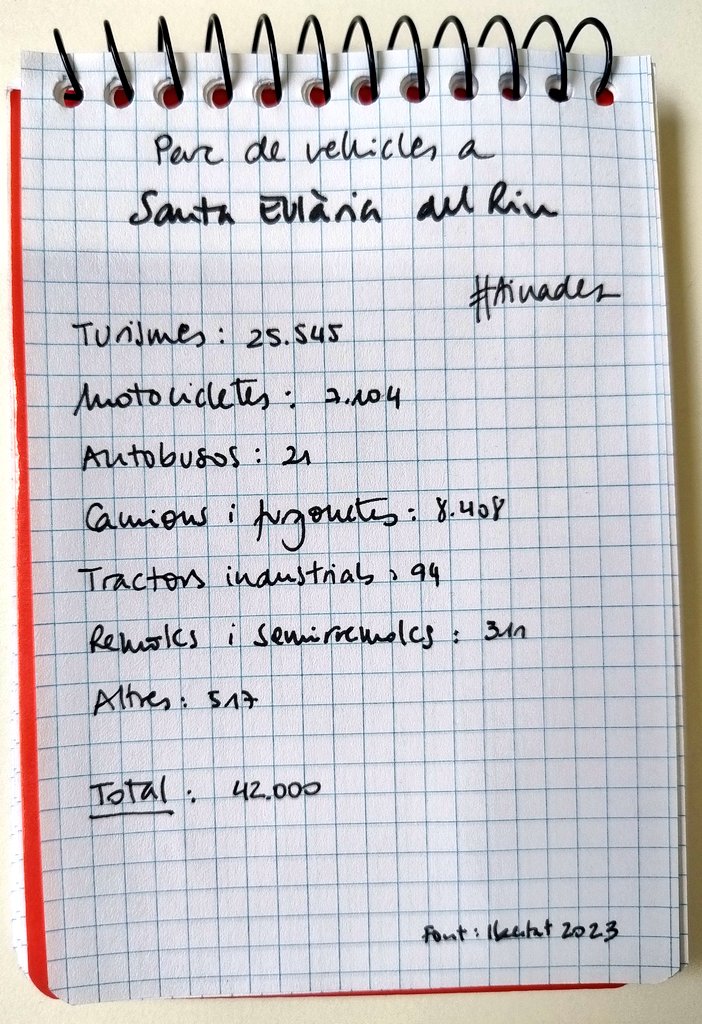 Parc de vehicles a
Santa Eulària del Riu
#Ainades
Turismes: 25.545
Motocicletes: 7.104
Autobusos: 21
Camions i furgonetes: 8.408
Tractors industrials: 94
Remolcs i semirremolcs: 311
Altres: 517
Total: 42.000
Font: Ibestat 2023